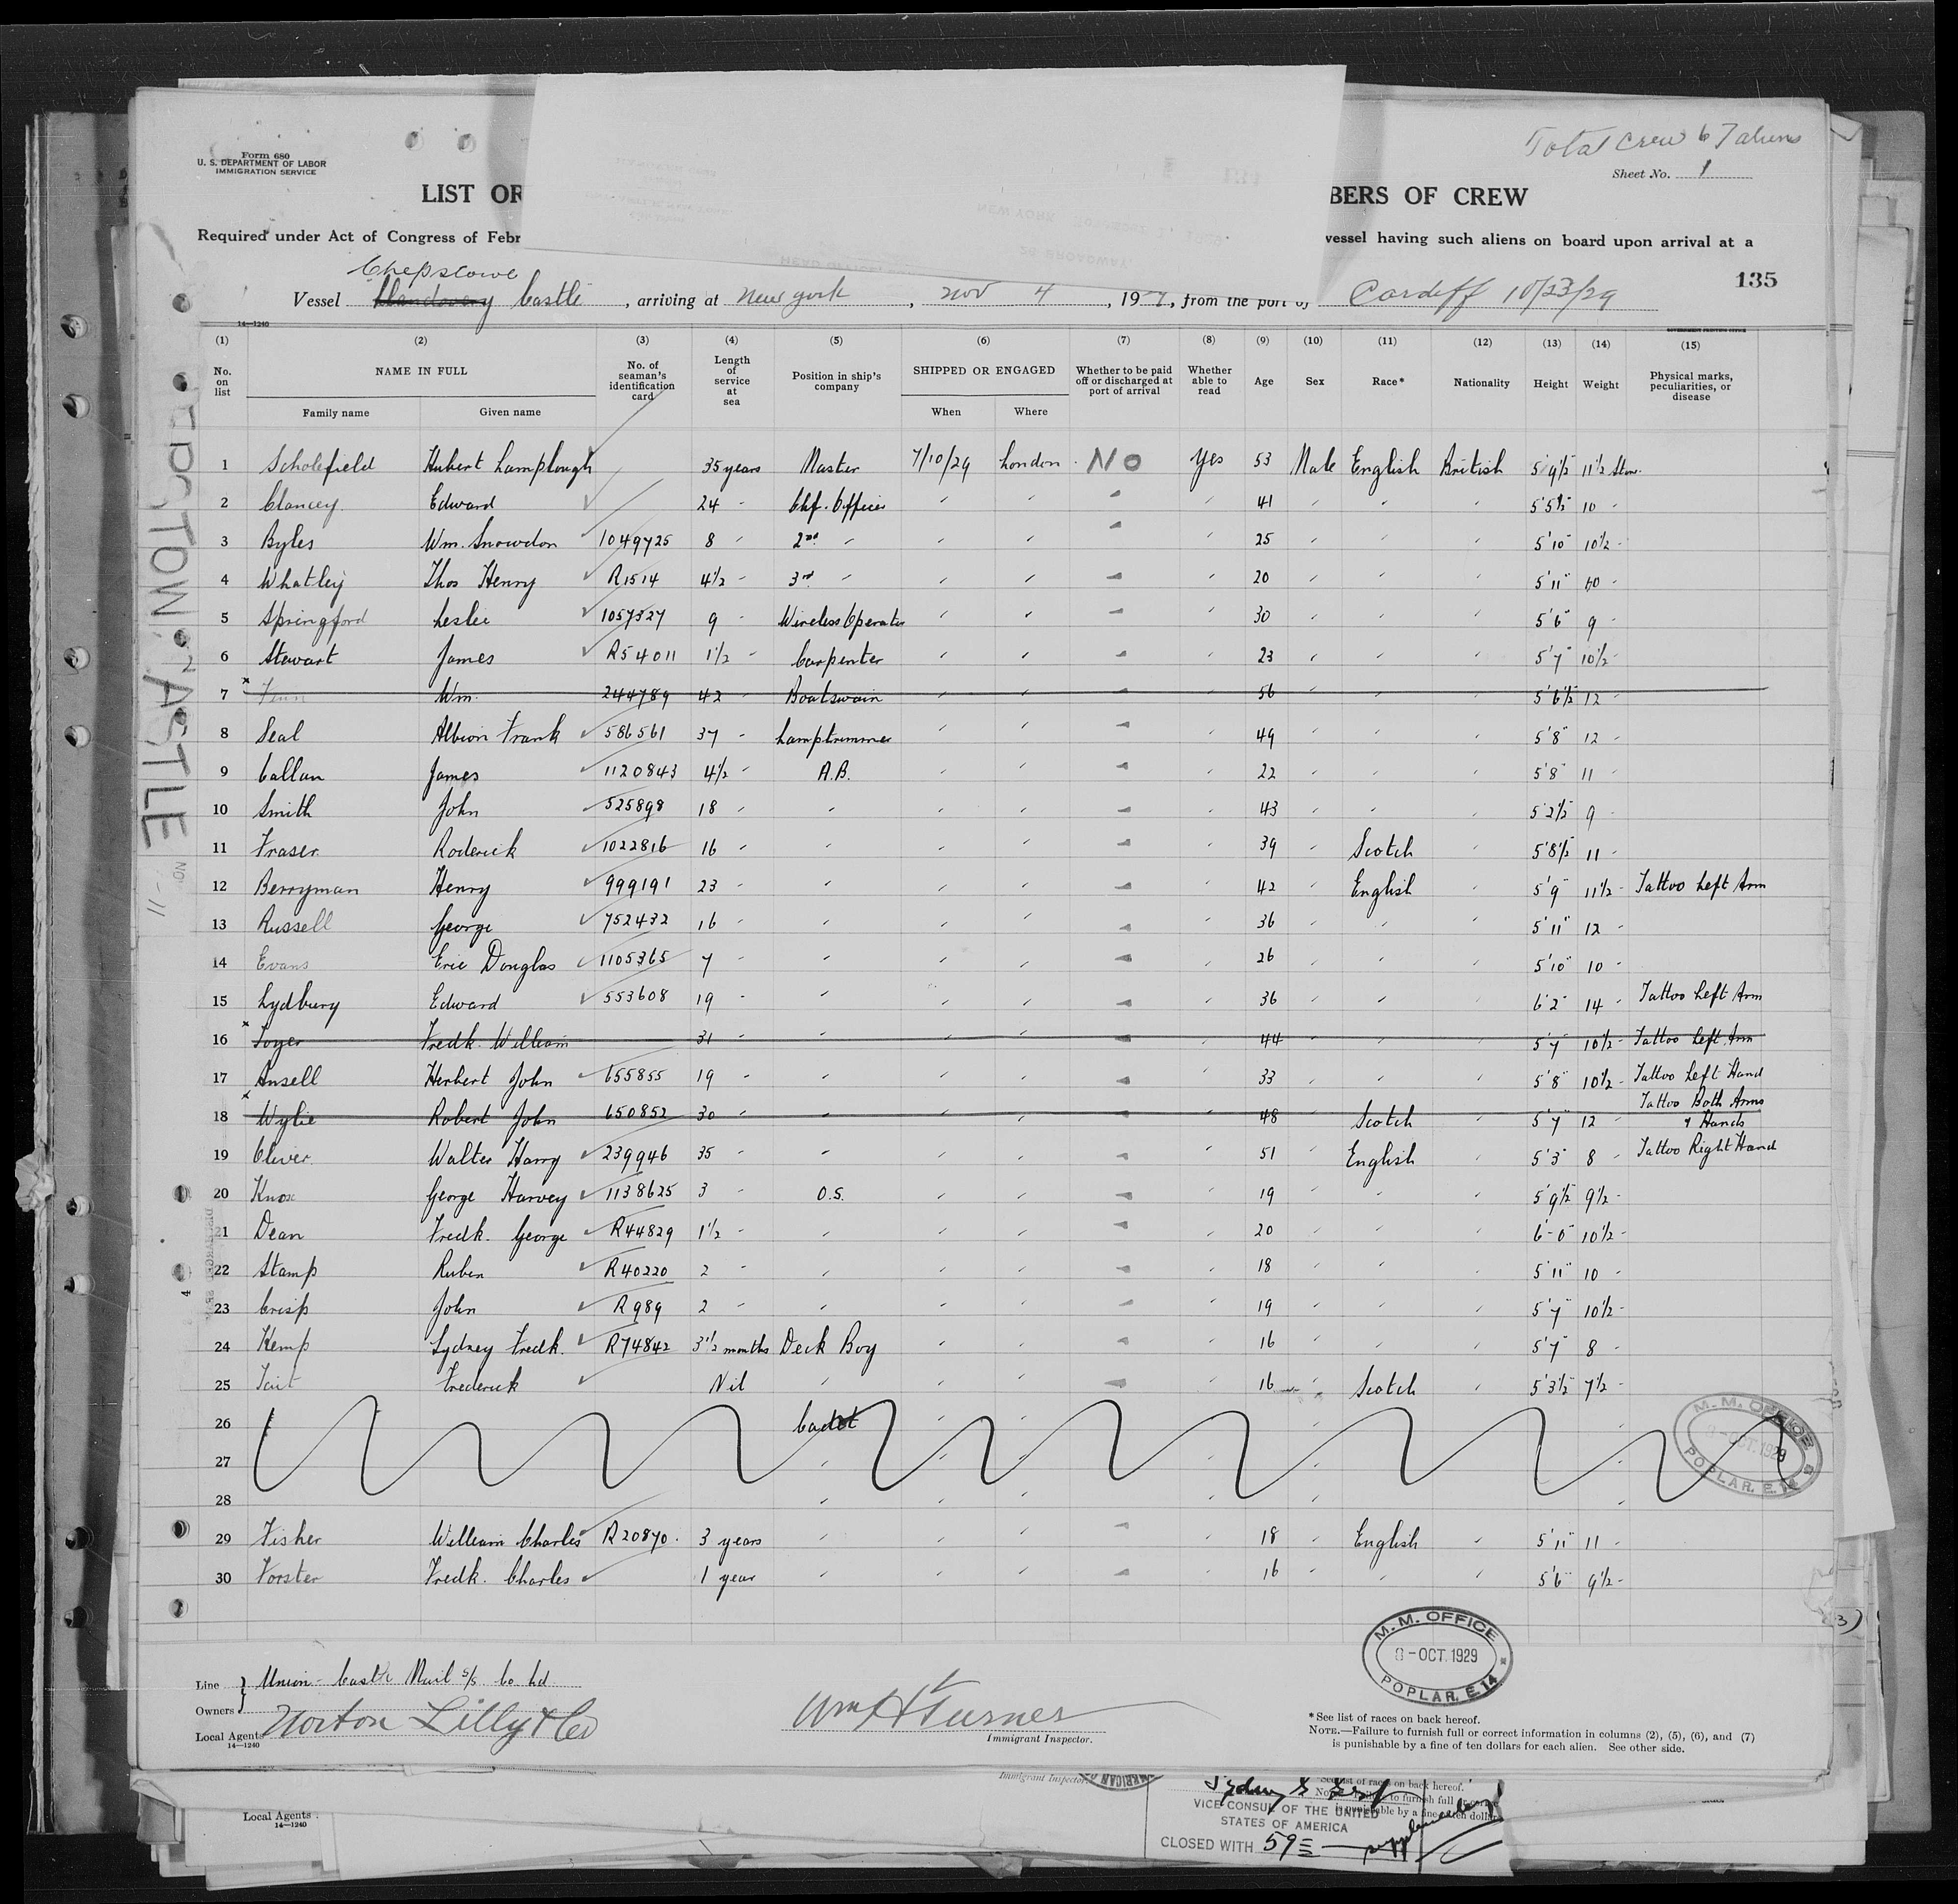 Total Crew 67 aliens
Form 680
U. S. DEPARTMENT OF LABOR
IMMIGRATION SERVICE
Sheet No. 1
LIST OF BERS OF CREW
Required under Act of Congress of Febr vessel having such aliens on board upon arrival at a
135
Chepstowe
Vessel Llandovery Castle, arriving at New York, Nov 4, 19, from the port of Cardiff 10/23/29
14—1240
(1) (2) (3) (4) (5) (6) (7) (8) (9) (10) (11) (12) (13) (14) (15)
No. on list NAME IN FULL No. of seaman's identification card Length of service at sea Position in ship's company SHIPPED OR ENGAGED Whether to be paid off or discharged at port of arrival Whether able to read Age Sex Race* Nationality Height Weight Physical marks, peculiarities, or disease
Family name Given name When Where
1 Scholefield Hubert Lamplough 35 years Master 7/10/29 London NO Yes 53 Male English British 5'9½ 11½ Stone
2 Clancey Edward 24 Chf. Officer 41 5'5½ 10
3 Byles Wm. Snowdon 1049725 8 2nd 25 5'10" 10½
4 Whatley Thos Henry R1514 4½ 3rd 20 5'11" 10
5 Springford Leslie 1057327 9 Wireless Operator 30 5'6" 9
6 Stewart James R54011 1½ Carpenter 23 5'7" 10½
7 Fenn Wm. 244789 42 Boatswain 56 5'6½ 12
8 Seal Albion Frank 586561 37 Lamptrimmer 49 5'8" 12
9 Callan James 1120843 4½ A.B. 22 5'8" 11
10 Smith John 525898 18 43 5'2½ 9
11 Fraser Roderick 1022816 16 39 Scotch 5'8½ 11
12 Berryman Henry 999191 23 42 English 5'9" 11½ Tattoo Left Arm
13 Russell George 752432 16 36 5'11" 12
14 Evans Eric Douglas 1105365 7 26 5'10" 10
15 Lydbury Edward 553608 19 36 6'2" 14 Tattoo Left Arm
16 Toyer Fredk. William 31 44 5'7" 10½ Tattoo Left Arm
17 Ansell Herbert John 655855 19 33 5'8" 10½ Tattoo Left Hand
18 Wylie Robert John 650852 30 48 Scotch 5'7" 12 Tattoo Both Arms & Hands
19 Oliver Walter Harry 239946 35 51 English 5'3" 8 Tattoo Right Hand
20 Knox George Harvey 1138625 3 O.S. 19 5'9½ 9½
21 Dean Fredk. George R44829 1½ 20 6'-0" 10½
22 Stamp Ruben R40220 2 18 5'11" 10
23 Crisp John R989 2 19 5'7" 10½
24 Kemp Sydney Fredk. R74842 3½ months Deck Boy 16 5'7" 8
25 Tait Frederick Nil 16 Scotch 5'3½ 7½
26 Cadet
27
28
29 Fisher William Charles R20870 3 years 18 English 5'11" 11
30 Forster Fredk. Charles 1 year 16 5'6" 9½
M. M. OFFICE
8-OCT.1929
POPLAR. E.14
M. M. OFFICE
8-OCT.1929
POPLAR. E.14
Line Union-Castle Mail S/S Co Ld
Owners
Local Agents Norton Lilly & Co
14—1240
Wm H Turner
Immigrant Inspector.
*See list of races on back hereof.
NOTE.—Failure to furnish full or correct information in columns (2), (5), (6), and (7)
is punishable by a fine of ten dollars for each alien. See other side.
Immigrant Inspector.
Local Agents
14—1240
VICE CONSUL OF THE UNITED
STATES OF AMERICA
CLOSED WITH 59